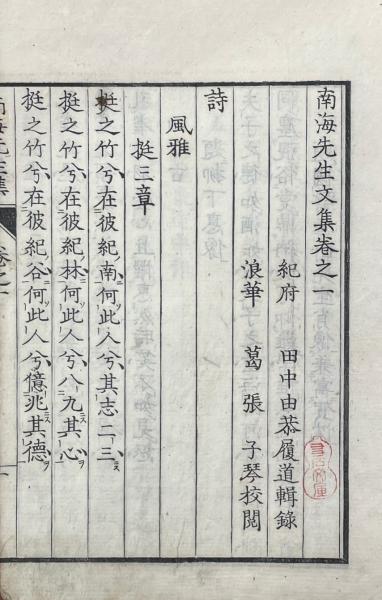 南海先生文集卷之一
紀府　田中由恭履道輯錄
浪華　葛張　子琴校閲
詩
風雅
挺三章
挺之竹兮在彼紀南何此人兮其志二三
挺之竹兮在彼紀林何此人兮八九其心
挺之竹兮在彼紀谷何此人兮億兆其德
南海先生集　卷之一